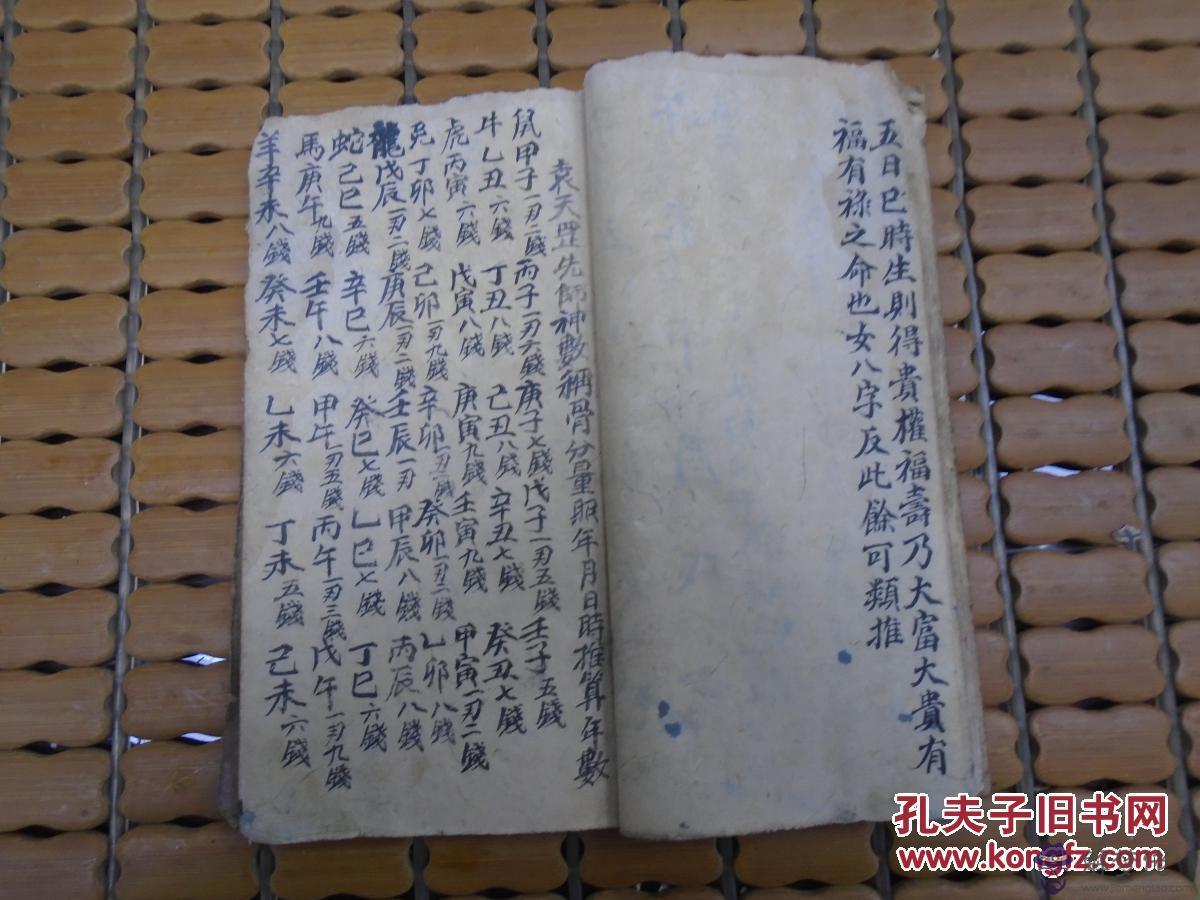 五日巳時生則得貴權福壽乃大富大貴有
福有祿之命也女八字反此餘可類推
袁天罡先師神數稱骨分量照年月日時推算年數
鼠甲子一刃二錢丙子一刃六錢庚子七錢戊子一刃五錢壬子五錢
牛乙丑六錢丁丑八錢己丑八錢辛丑七錢癸丑七錢
虎丙寅六錢戊寅八錢庚寅九錢壬寅九錢甲寅一刃二錢
兎丁卯七錢己卯一刃九錢辛卯一刃二錢癸卯一刃二錢乙卯八錢
龍戊辰一刃二錢庚辰一刃二錢壬辰一刃甲辰八錢丙辰八錢
蛇己巳五錢辛巳六錢癸巳七錢乙巳七錢丁巳六錢
馬庚午九錢壬午八錢甲午一刃五錢丙午一刃三錢戊午一刃九錢
羊辛未八錢癸未七錢乙未六錢丁未五錢己未六錢
孔夫子旧书网
www.kongfz.com